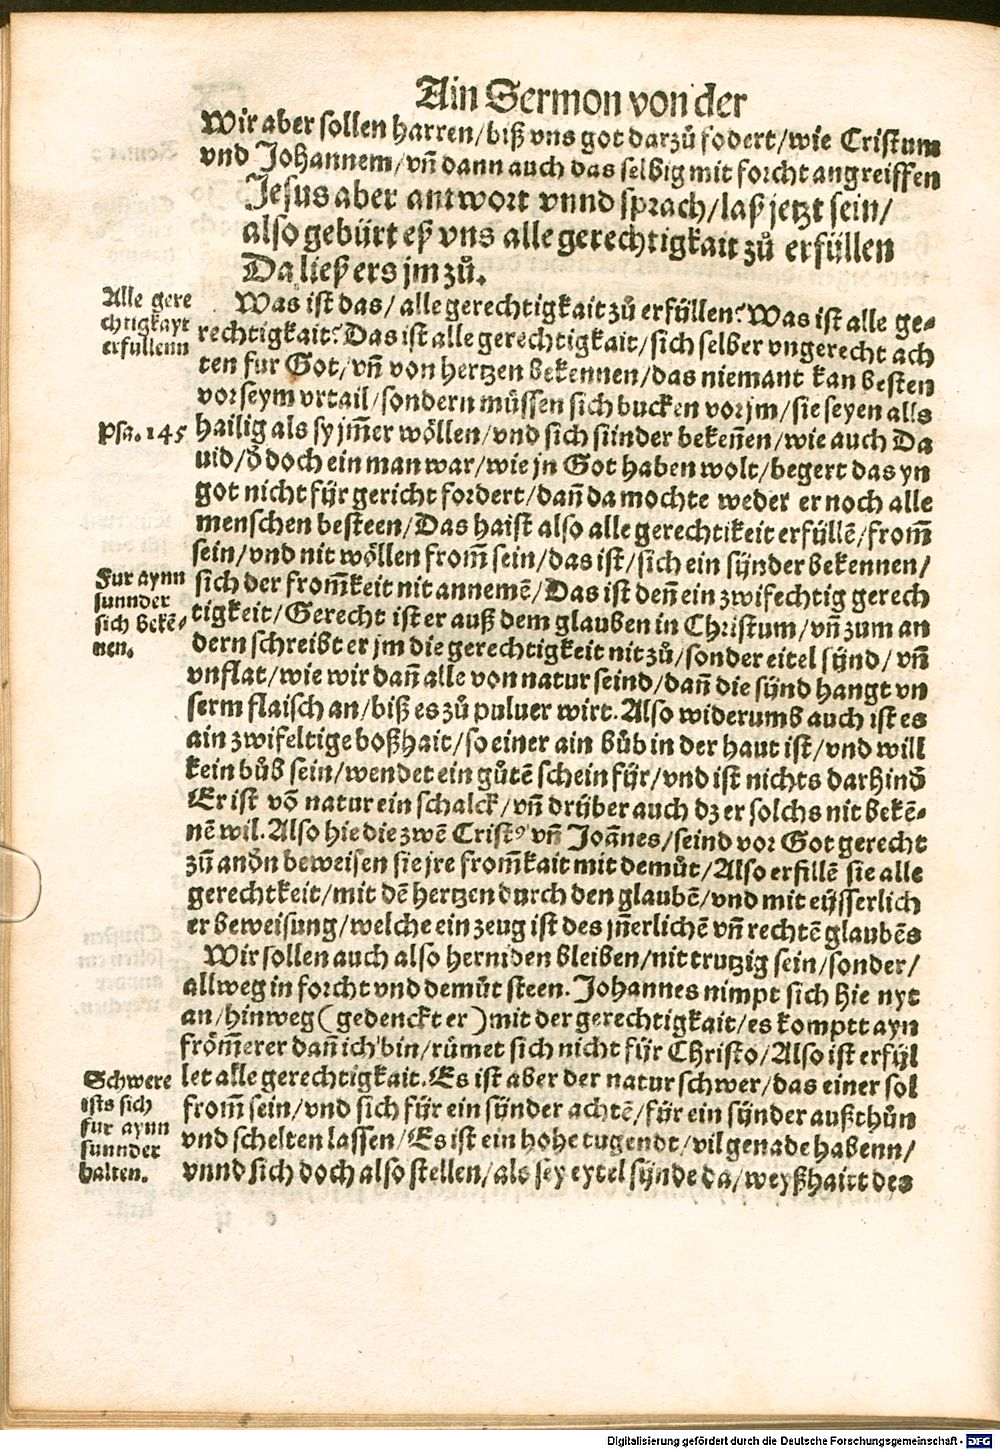 Ain Sermon von der
Wir aber sollen harren/biß vns got darzů fodert/wie Cristum
vnd Johannem/vn̄ dann auch das selbig mit forcht angreiffen
Jesus aber antwort vnnd sprach/laß jetzt sein/
also gebürt eß vns alle gerechtigkait zů erfüllen
Da ließ ers jm zů.
Alle gere
chtigkayt
erfullenn
Was ist das/ alle gerechtigkait zů erfyllen? Was ist alle ge⸗
rechtigkait? Das ist alle gerechtigkait/sich selber vngerecht ach
ten fur Got/vn̄ von hertzen bekennen/das niemant kan besten
vor seym vrtail/sondern müssen sich bucken vor jm/sie seyen alls
Psā. 145
hailig als sy jm̄er wöllen/vnd sich sünder beken̄en/wie auch Da
uid/d̄ doch ein man war/wie jn Got haben wolt/begert das yn
got nicht fyr gericht fordert/dan̄ da mochte weder er noch alle
menschen besteen/Das haist also alle gerechtikeit erfüllē/from̄
sein/vnd nit wöllen from̄ sein/das ist/sich ein sünder bekennen/
Fur aynn
sunnder
sich bekē⸗
nen.
sich der from̄keit nit annemē/Das ist den̄ ein zwifechtig gerech
tigkeit/Gerecht ist er auß dem glauben in Christum/vn̄ zum an
dern schreibt er jm die gerechtigkeit nit zů/sonder eitel sünd/vn̄
vnflat/wie wir dan̄ alle von natur seind/dan̄ die sünd hangt vn
serm flaisch an/biß es zů puluer wirt. Also widerumb auch ist es
ain zwifeltige boßhait/so einer ain bůb in der haut ist/vnd will
kein bůb sein/wendet ein gůtē schein für/vnd ist nichts darhind̄
Er ist vō natur ein schalck/vn̄ drüber auch dz er solchs nit bekē⸗
nē wil. Also hie die zwē Crist⁹ vn̄ Joānes/seind vor Got gerecht
zū and̄n beweisen sie jre from̄kait mit demůt/Also erfillē sie alle
gerechtkeit/mit dē hertzen durch den glaubē/vnd mit eüsserlich
er beweisung/welche ein zeug ist des jn̄erlichē vn̄ rechtē glaubēs
Wir sollen auch also herniden bleiben/nit trutzig sein/sonder/
allweg in forcht vnd demůt steen. Johannes nimpt sich hie nyt
an/hinweg (gedenckt er) mit der gerechtigkait/es komptt ayn
from̄erer dan̄ ich bin/růmet sich nicht für Christo/Also ist erfyl
Schwere
ists sich
fur aynn
sunnder
halten.
let alle gerechtigkait. Es ist aber der natur schwer/das einer sol
from̄ sein/vnd sich für ein sünder achtē/für ein sünder außthůn
vnd schelten lassen/Es ist ein hohe tugendt/vil genade habenn/
vnnd sich doch also stellen/als sey eytel sünde da/weyßhaitt des
Digitalisierung gefördert durch die Deutsche Forschungsgemeinschaft - DFG